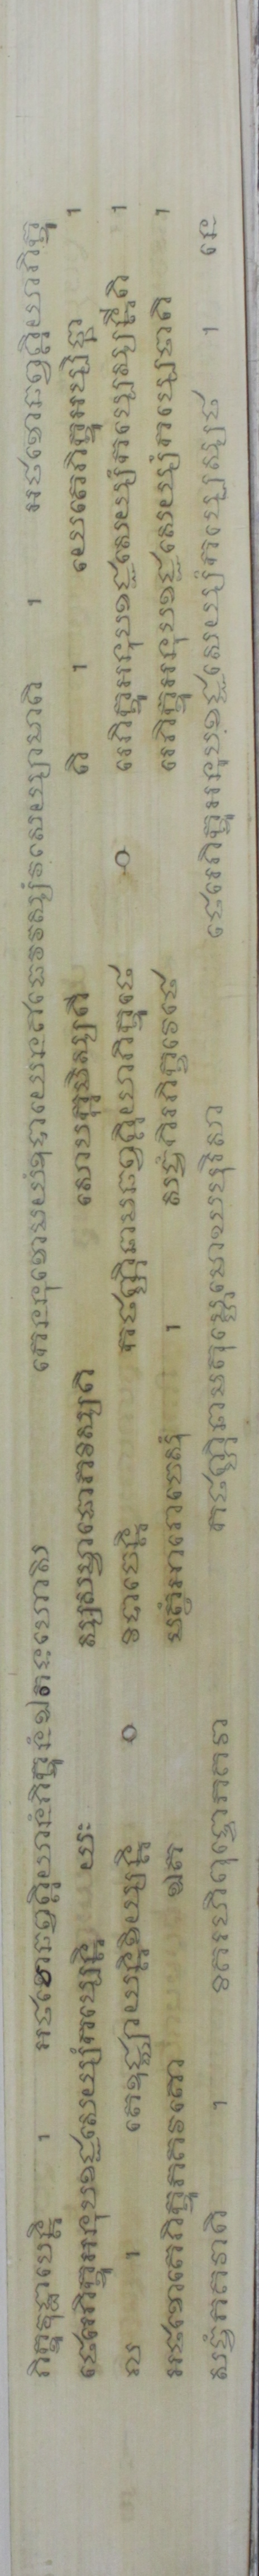 ភិក្ខូវុដ្ឋាបេន្តិ ។ អថខោឆព្វគ្គិយានំភិក្ខូនំឯតទហោសិ កេននុខោមយំឧបាយេនឥធេវវស្សំវសេយ្យាមាតិ ។ អថខោឆព្វគ្គិយាភិក្ខូ
ថេរេភិក្ខូអនុបខជ្ជសេយ្យំកប្បេន្តិ យ ស្សសម្ពាធោភវិស្សតិ សោបក្កមិស្សតី តិ ។ យេតេភិក្ខូអប្បិច្ឆា ។
ល ។ តេឧជ្ឈាយន្តិខិយ្យន្តិ ០ វិបាចេន្តិ កថញ្ហិនាមឆព្វគ្គិយាភិក្ខូថេ ០ រេភិក្ខូអនុបខជ្ជសេយ្យំកប្បេស្សន្តីតិ ។
អថខោតេភិក្ខូភគវតោ ឯត មត្ថំអារោចេសុំ ។ សច្ចំកិរភិក្ខវេថេ រេភិក្ខូអនុបខជ្ជសេយ្យំកប្បេថាតិ ។
សច្ចំភគវាតិ ។ វិគរហិពុទ្ធោភគវា កថញ្ហិនាមតុម្ហេមោឃបុរិសា ថេរេភិក្ខូអនុបខជ្ជសេយ្យំកប្បេស្សថ ។ នេ